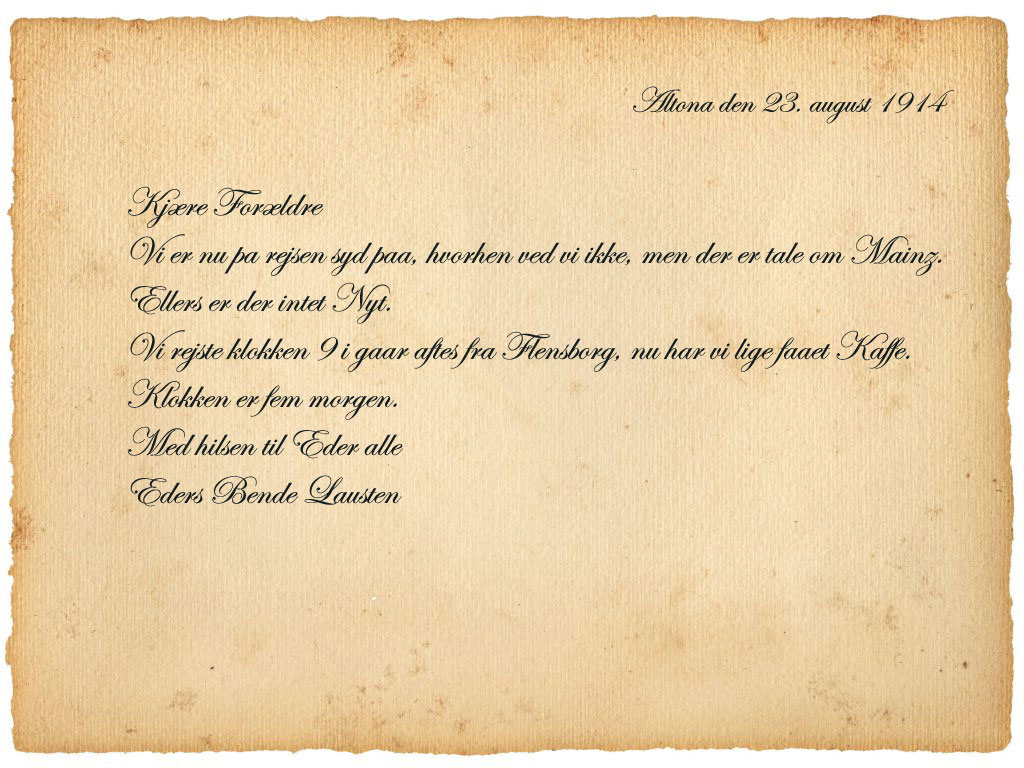 Altona den 23. august 1914
Kjære Forældre
Vi er nu pa rejsen syd paa, hvorhen ved vi ikke, men der er tale om Mainz.
Ellers er der intet Nyt.
Vi rejste klokken 9 i gaar aftes fra Flensborg, nu har vi lige faaet Kaffe.
Klokken er fem morgen.
Med hilsen til Eder alle
Eders Bende Lausten